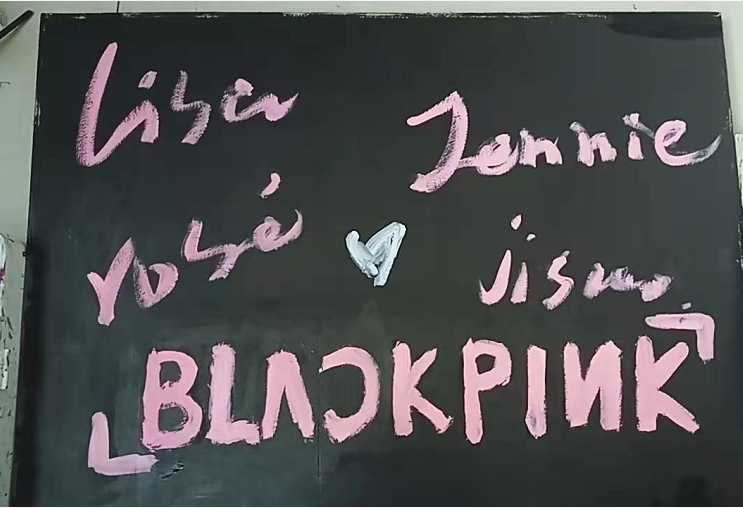 Lisa Jennie
rosé jisoo
BLACKPINK